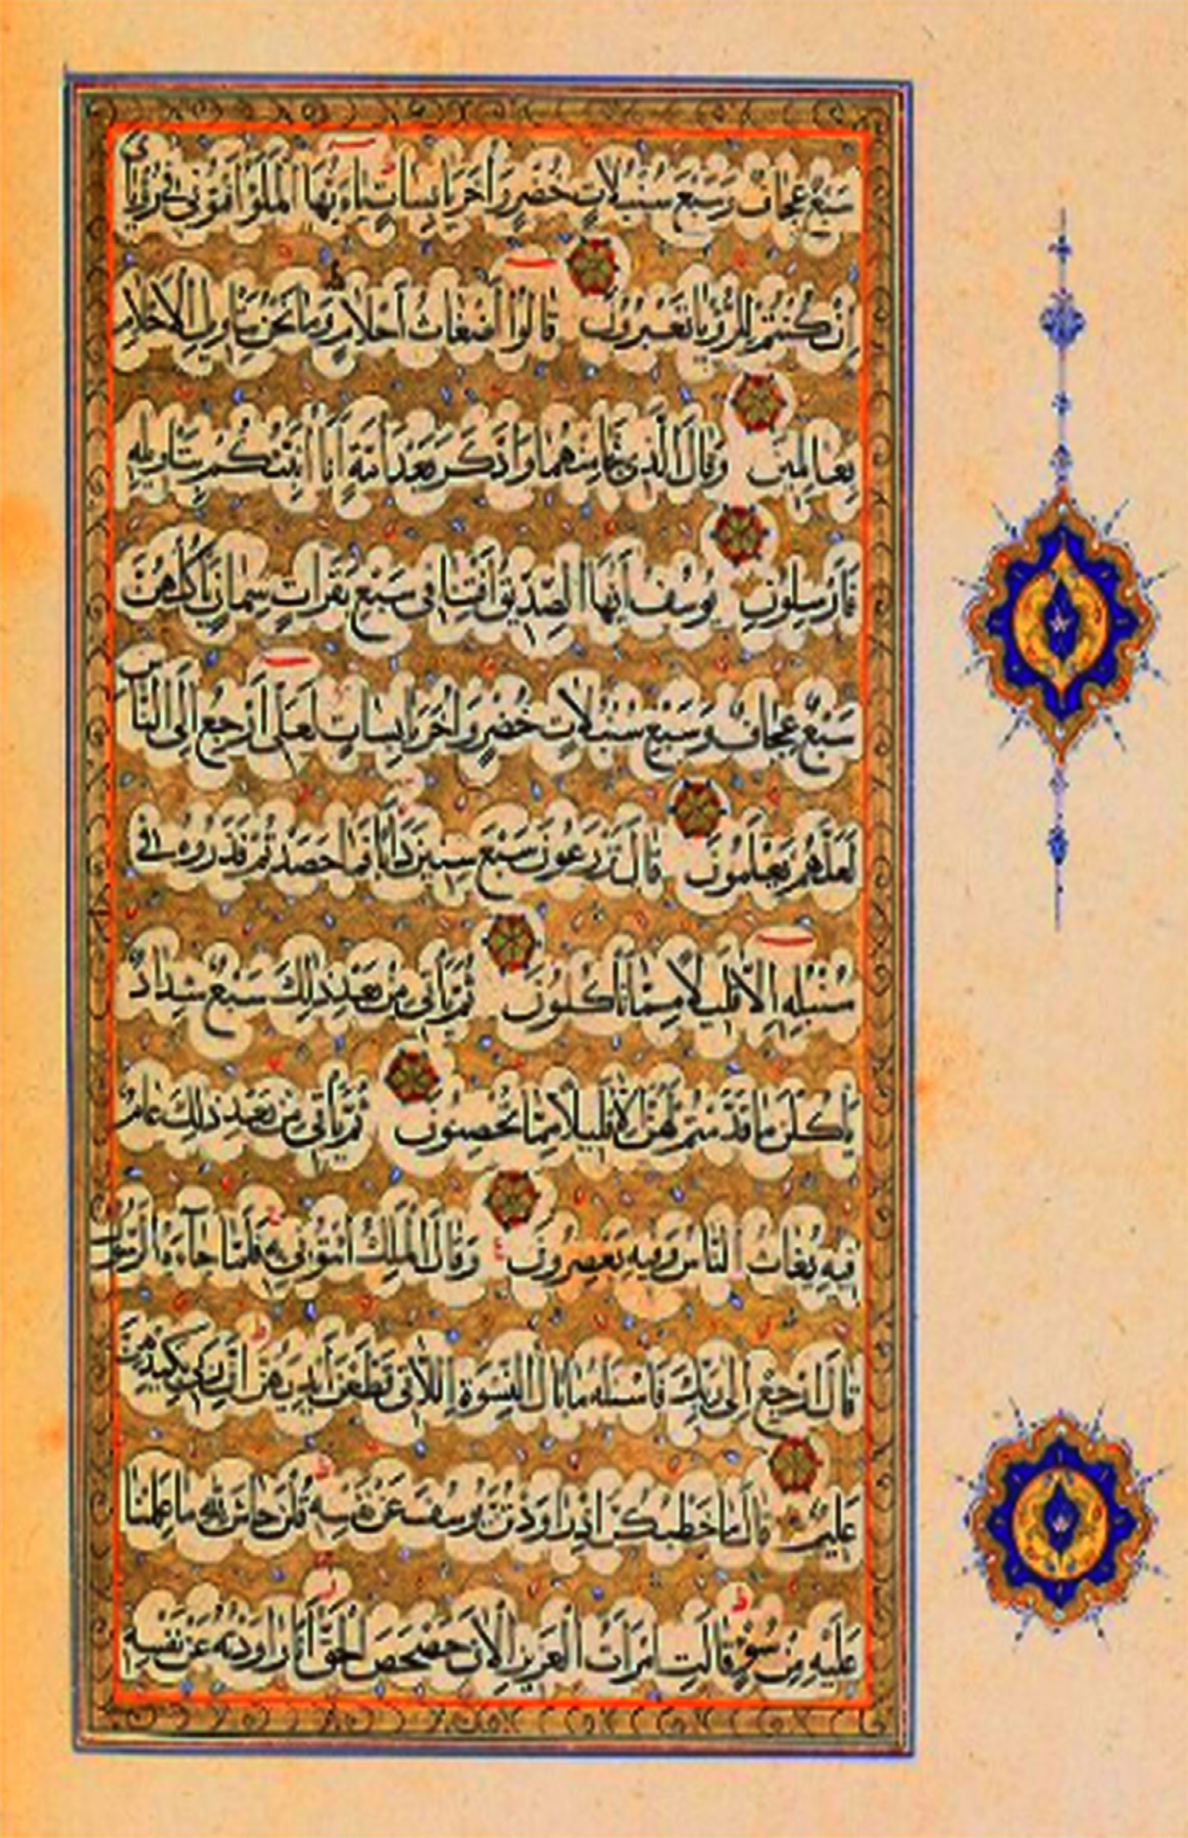 سَبْعٌ عِجَافٌ وَسَبْعَ سُنْبُلَاتٍ خُضْرٍ وَأُخَرَ يَابِسَاتٍ يَاءَيُّهَا الْمَلَؤُا أَفْتُونِي فِي رُؤْيَايَ
إِنْ كُنْتُمْ لِلرُّؤْيَا تَعْبُرُونَ قَالُوا أَضْغَاثُ أَحْلَامٍ وَمَا نَحْنُ بِتَأْوِيلِ الْأَحْلَامِ
بِعَالِمِينَ وَقَالَ الَّذِي نَجَا مِنْهُمَا وَادَّكَرَ بَعْدَ أُمَّةٍ أَنَا أُنَبِّئُكُمْ بِتَأْوِيلِهِ
فَأَرْسِلُونِ يُوسُفُ أَيُّهَا الصِّدِّيقُ أَفْتِنَا فِي سَبْعِ بَقَرَاتٍ سِمَانٍ يَأْكُلُهُنَّ
سَبْعٌ عِجَافٌ وَسَبْعِ سُنْبُلَاتٍ خُضْرٍ وَأُخَرَ يَابِسَاتٍ لَعَلِّي أَرْجِعُ إِلَى النَّاسِ
لَعَلَّهُمْ يَعْلَمُونَ قَالَ تَزْرَعُونَ سَبْعَ سِنِينَ دَأَبًا فَمَا حَصَدْتُمْ فَذَرُوهُ فِي
سُنْبُلِهِ إِلَّا قَلِيلًا مِمَّا تَأْكُلُونَ ثُمَّ يَأْتِي مِنْ بَعْدِ ذَلِكَ سَبْعٌ شِدَادٌ
يَأْكُلْنَ مَا قَدَّمْتُمْ لَهُنَّ إِلَّا قَلِيلًا مِمَّا تُحْصِنُونَ ثُمَّ يَأْتِي مِنْ بَعْدِ ذَلِكَ عَامٌ
فِيهِ يُغَاثُ النَّاسُ وَفِيهِ يَعْصِرُونَ وَقَالَ الْمَلِكُ ائْتُونِي بِهِ فَلَمَّا جَاءَهُ الرَّسُولُ
قَالَ ارْجِعْ إِلَى رَبِّكَ فَاسْئَلْهُ مَا بَالُ النِّسْوَةِ اللَّاتِي قَطَّعْنَ أَيْدِيَهُنَّ إِنَّ رَبِّي بِكَيْدِهِنَّ
عَلِيمٌ قَالَ مَا خَطْبُكُنَّ إِذْ رَاوَدْتُنَّ يُوسُفَ عَنْ نَفْسِهِ قُلْنَ حَاشَ لِلَّهِ مَا عَلِمْنَا
عَلَيْهِ مِنْ سُوءٍ قَالَتِ امْرَأَتُ الْعَزِيزِ الْآنَ حَصْحَصَ الْحَقُّ أَنَا رَاوَدْتُهُ عَنْ نَفْسِهِ